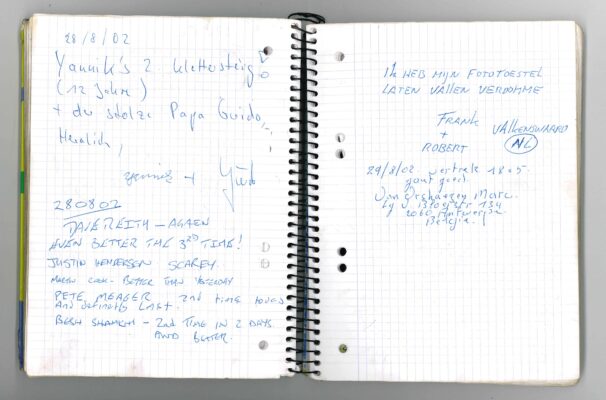 28/8/02
Yannik's 2. Klettersteig
(12 Jahre)
+ der stolze Papa Guido,
Herzlich,
Yannik + Guido
280802
DAVE REITH - AGAEN
EVEN BETTER THE 3RD TIME!
JUSTIN HENDERSON SCAREY.
MARTIN COOK - BETTER THAN YESTERDAY
PETE MEAGER 2nd time
And definetly LAST.
BESH SHAMCHI - 2nd TIME IN 2 DAYS.
AND BETTER.
IK HEB MIJN FOTOTOESTEL
LATEN VALLEN VERDOMME
FRANK
+
ROBERT
VALKENSWAARD
NL
29/8/02. vertrek 18.05.
gaat goed.
Marc.
134
2060 Antwerpen
België